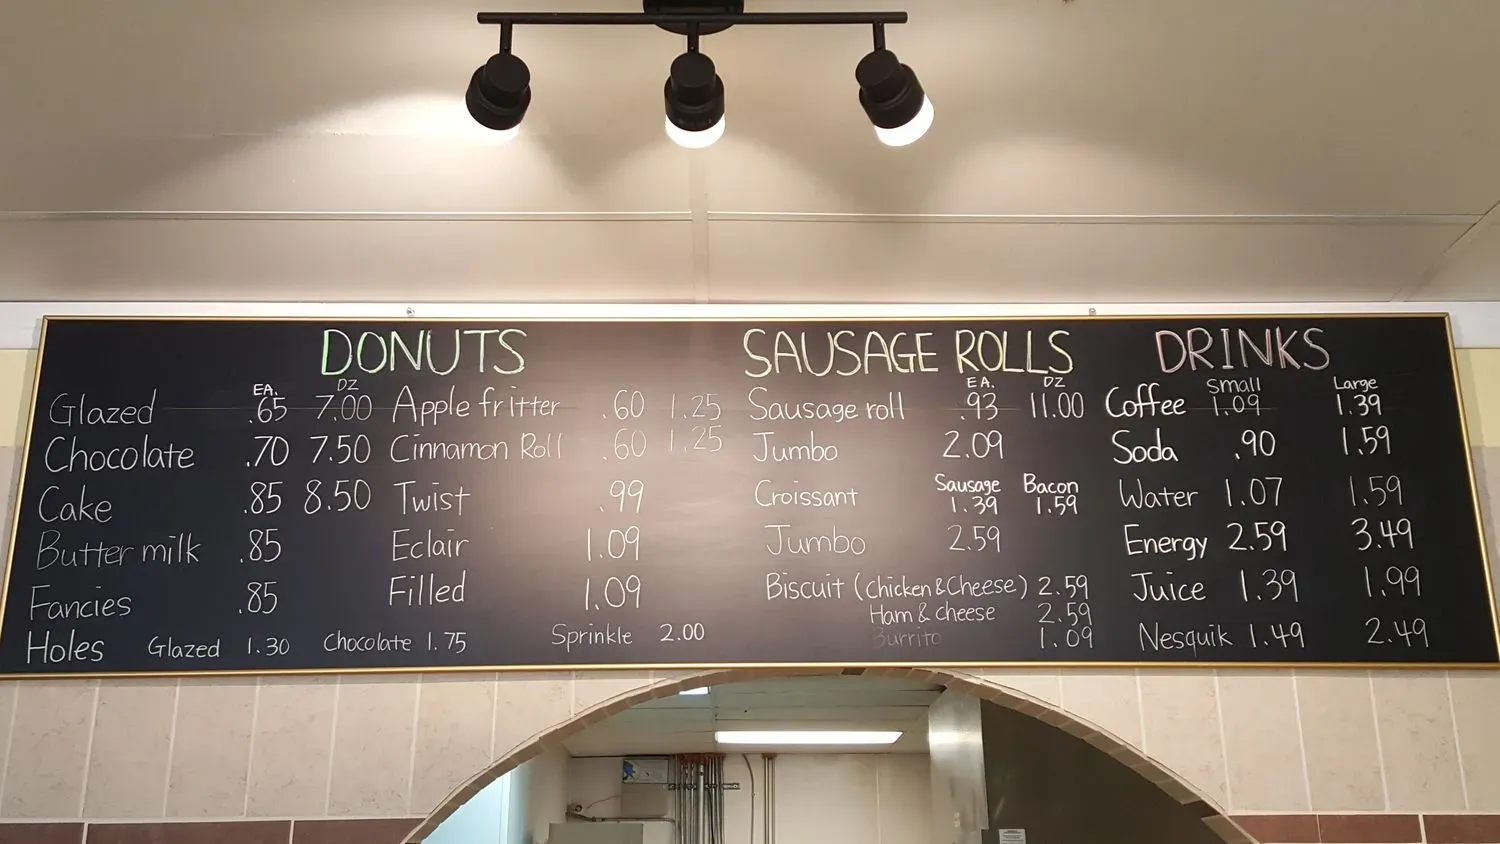 DONUTS
EA. DZ
Glazed .65 7.00
Chocolate .70 7.50
Cake .85 8.50
Butter milk .85
Fancies .85
Holes Glazed 1.30 Chocolate 1.75 Sprinkle 2.00
Apple fritter .60 1.25
Cinnamon Roll .60 1.25
Twist .99
Eclair 1.09
Filled 1.09
SAUSAGE ROLLS
EA. DZ
Sausage roll .93 11.00
Jumbo 2.09
Sausage Bacon
Croissant 1.39 1.59
Jumbo 2.59
Biscuit (Chicken & Cheese) 2.59
Ham & cheese 2.59
Burrito 1.09
DRINKS
Small Large
Coffee 1.09 1.39
Soda .90 1.59
Water 1.07 1.59
Energy 2.59 3.49
Juice 1.39 1.99
Nesquik 1.49 2.49